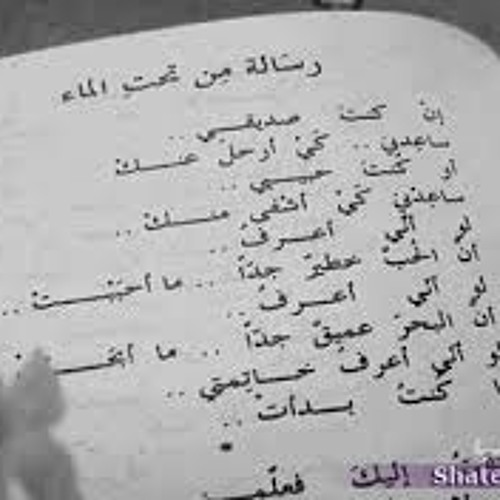 رسالة من تحت الماء
إن كنت صديقي ..
ساعدني .. كي أرحل عنك
أو كنت حبيبي ..
ساعدني كي أشفى منك ..
لو أني أعرف ..
أن الحب خطير جدًا .. ما أحببت ..
لو أني أعرف ..
أن البحر عميق جدًا .. ما أبحـ
لو أني أعرف خاتمتي ..
كنت بدأت ..
إليك فعلّمـ
Shate